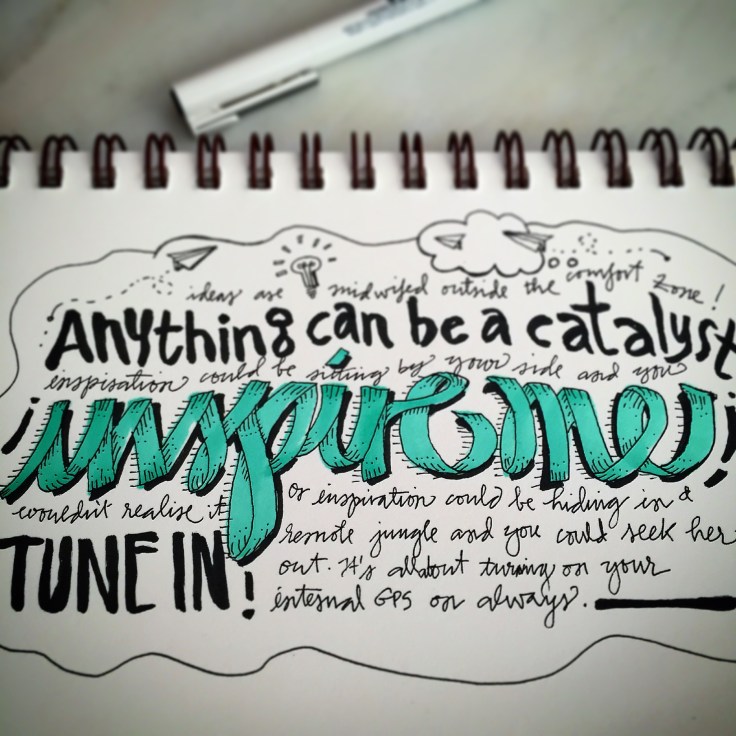 ideas are midwifed outside the comfort zone!
Anything can be a catalyst
inspiration could be sitting by your side and you
¡inspire me!
wouldn't realise it
Or inspiration could be hiding in a
remote jungle and you could seek her
out. It's all about turning on your
internal GPS on always.
TUNE IN!